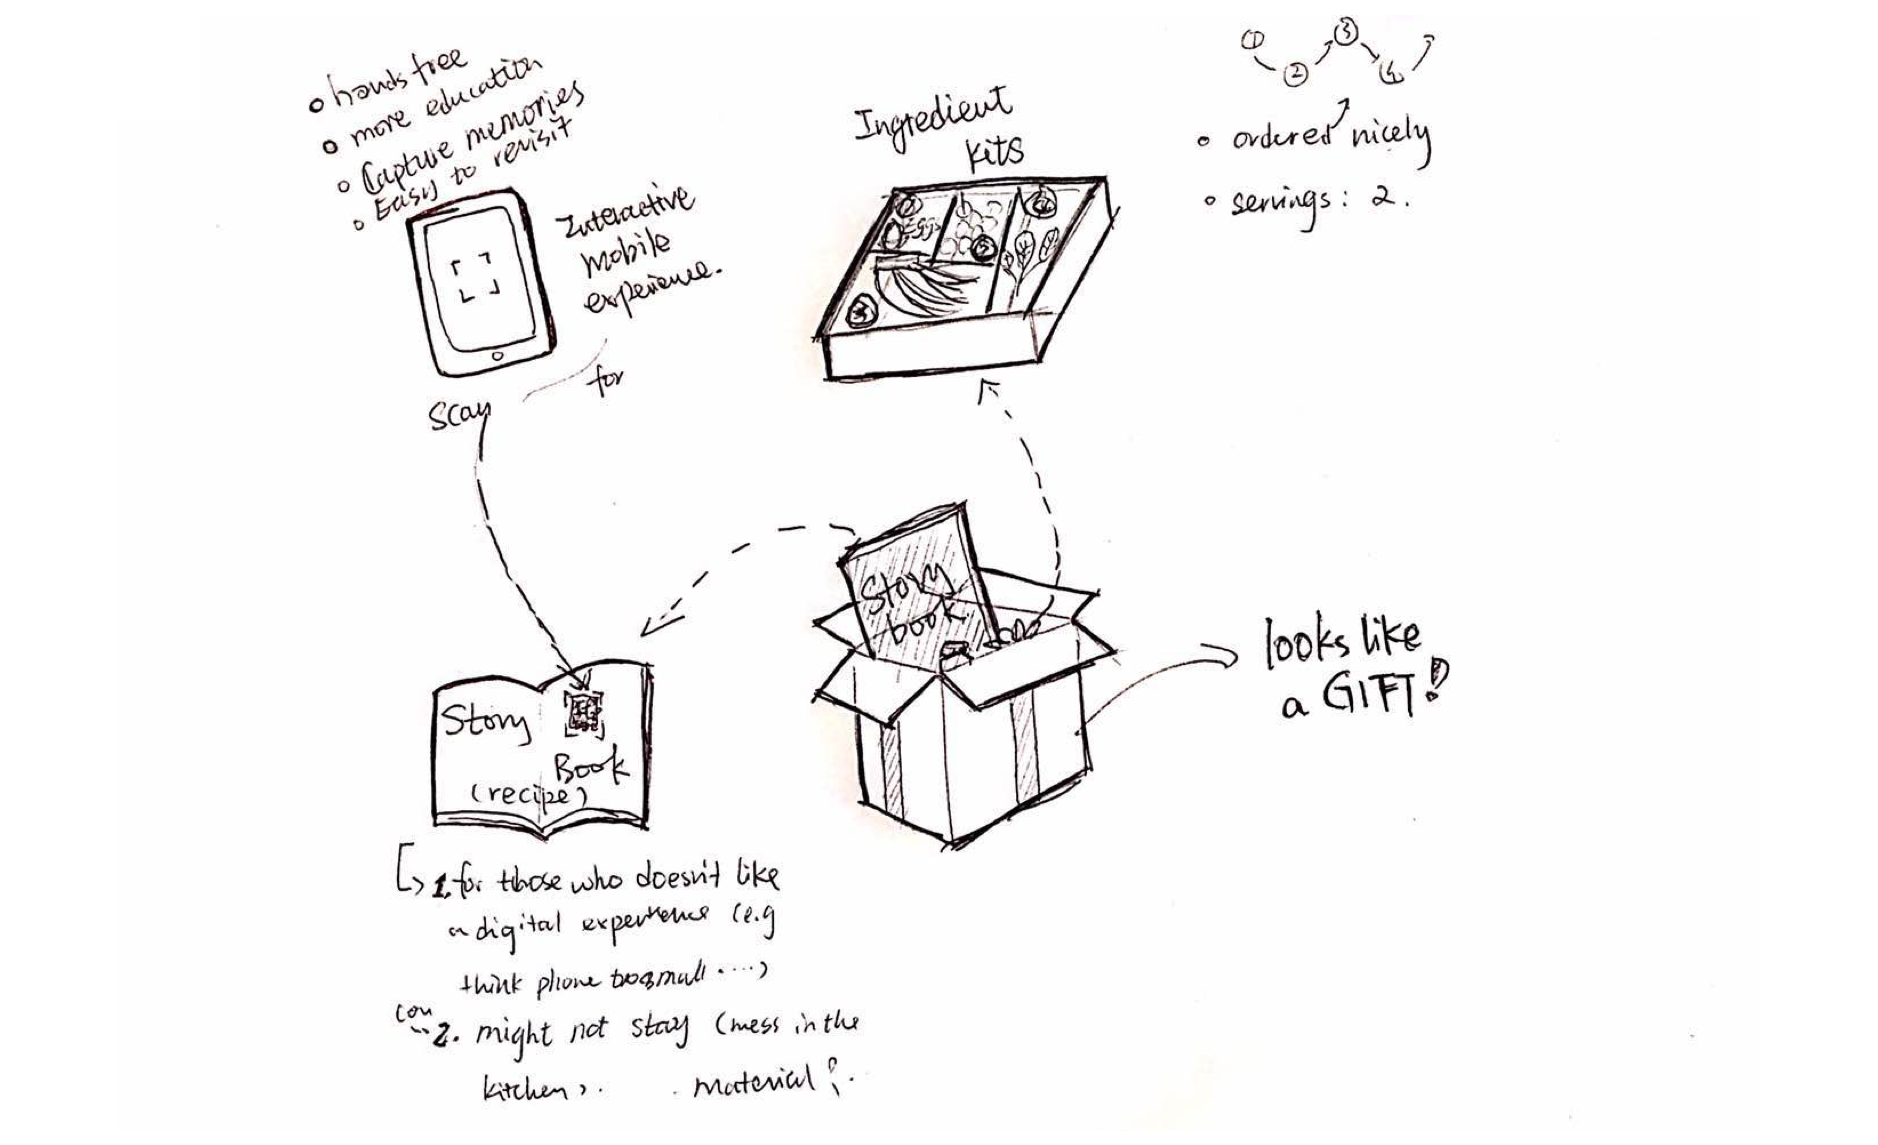 hands free
more education
Capture memories
Easy to revisit
Interactive
mobile
experience.
for
Scan
Ingredient
kits
eggs
1
2
3
4
ordered nicely
servings: 2.
Story
book
looks like
a GIFT!
Story
Book
(recipe)
1. for those who doesn't like
a digital experience (e.g
think phone too small ....)
con
2. might not stay (mess in the
kitchen).
material?